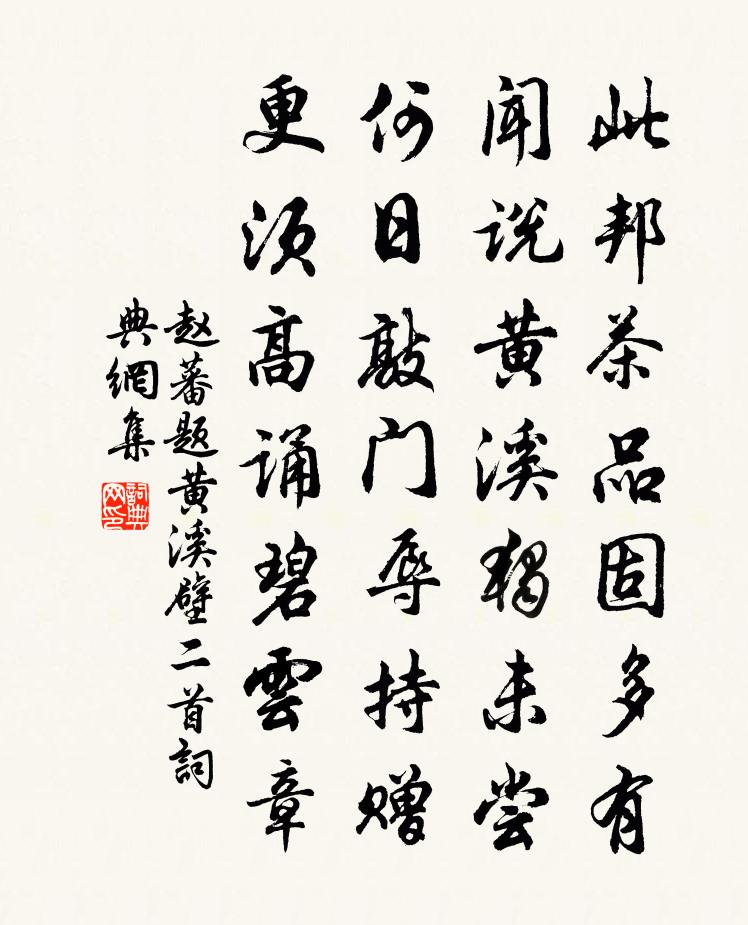 此邦茶品固多有
闻说黄溪独未尝
何日敲门辱持赠
更须高诵碧雲章
赵蕃题黄溪壁二首詞
典網集
詞典
网印